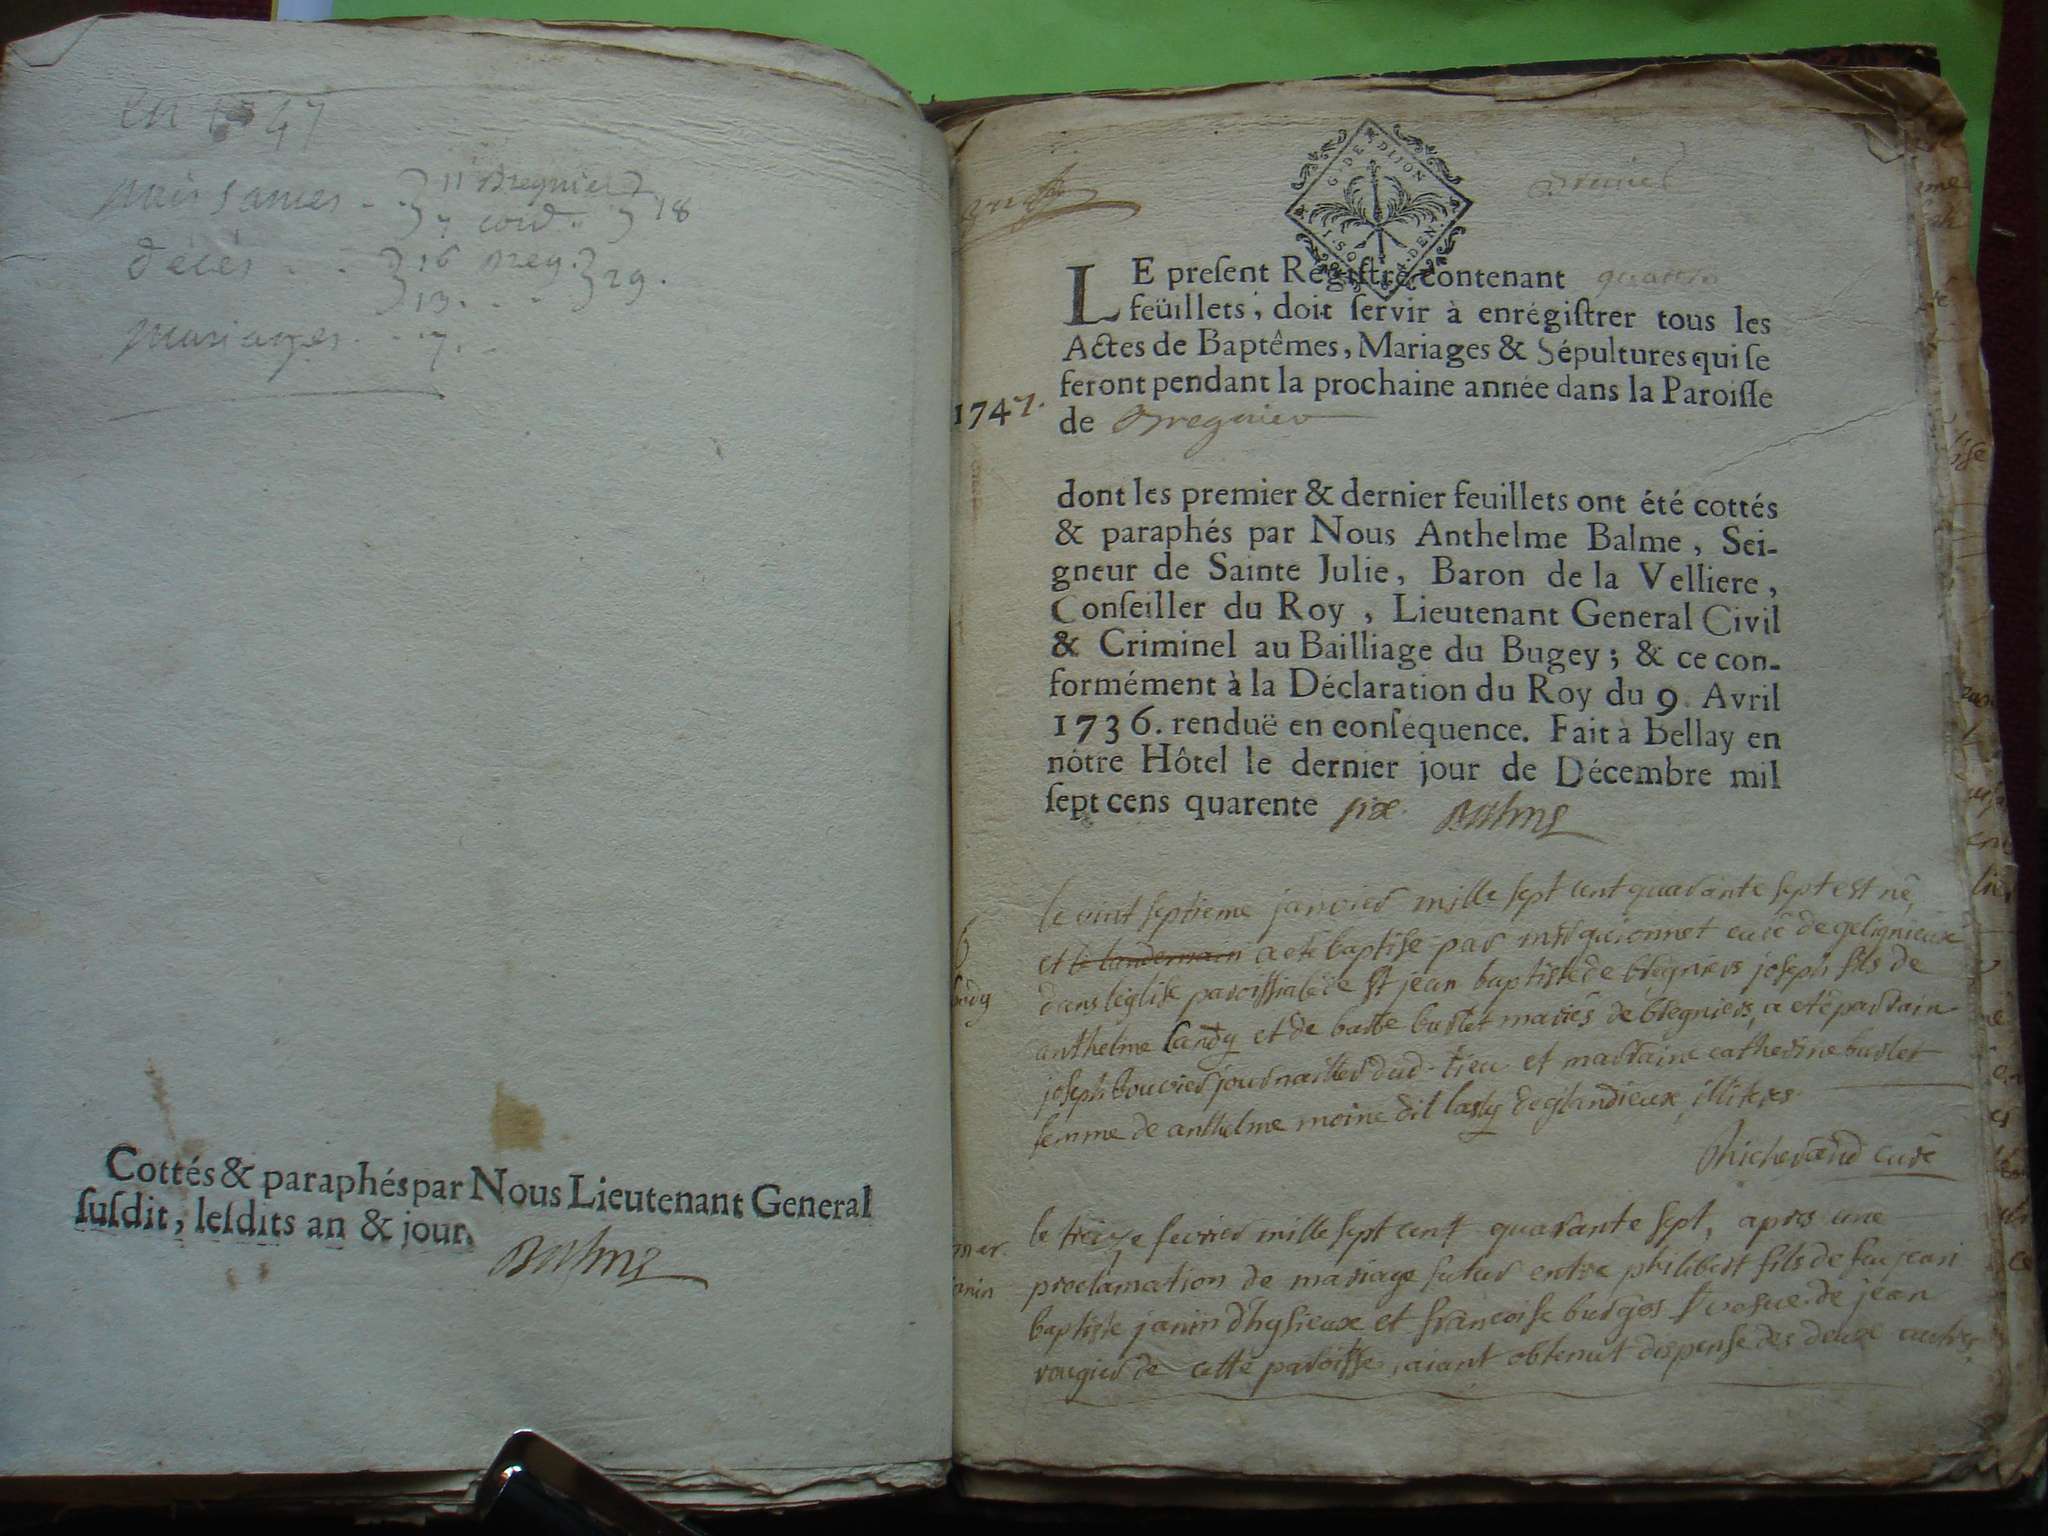 en 1747
naissances . . } 11 Bregnier }
} 7 cord .. } 18
décès . . . } 16 breg. } 29.
} 13 . . .
mariages . . . 7. . .
Cottés & paraphés par Nous Lieutenant General
ſuſdit, leſdits an & jour.
Balme
G. DE DIJON
premier
LE preſent Regiſtre contenant
feüillets, doit ſervir à enrégiſtrer tous les
Actes de Baptêmes, Mariages & Sépultures qui ſe
feront pendant la prochaine année dans la Paroiſſe
1747.
de Bregnier
dont les premier & dernier feuillets ont été cottés
& paraphés par Nous Anthelme Balme, Sei-
gneur de Sainte Julie, Baron de la Velliere,
Conſeiller du Roy, Lieutenant General Civil
& Criminel au Bailliage du Bugey; & ce con-
formément à la Déclaration du Roy du 9. Avril
1736. renduë en conſéquence. Fait à Bellay en
nôtre Hôtel le dernier jour de Décembre mil
ſept cens quarente six. Balme
le vint septieme janvier mille sept cent quarante sept est né,
et le landemain a eté baptisé par msr guionnet curé de gelignieux
dans l'eglise paroissiale de st jean baptiste de bregniers joseph fils de
anthelme landy et de barbe burlet mariés de bregniers, a eté parrain
joseph bouvier journallier dud. lieu et marraine catherine burlet
femme de anthelme moine dit lasly de glandieux, illiteres
Richerand curé
le treize fevrier mille sept cent quarante sept, apres une
proclamation de mariage futur entre philibert fils de feu jean
baptiste janin d'hysieux et francoise burgos veufve de jean
rougier de cette paroisse, aiant obtenut dispense des deux autres,